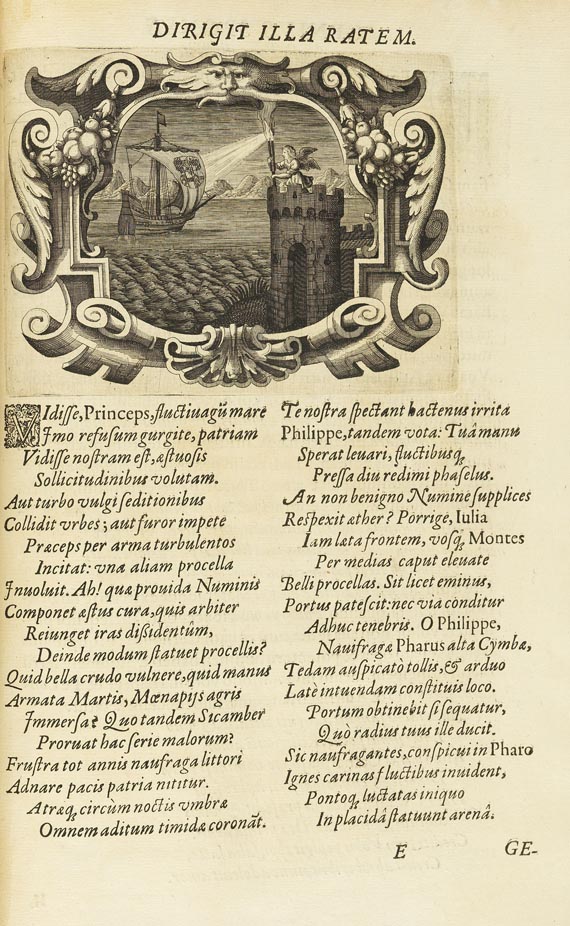 DIRIGIT ILLA RATEM.
VIdisse, Princeps, fluctiuagũ mare
Imo refusum gurgite, patriam
Vidisse nostram est, æstuosis
Sollicitudinibus volutam.
Aut turbo vulgi seditionibus
Collidit vrbes; aut furor impete
Præceps per arma turbulentos
Incitat: vnà aliam procella
Inuoluit. Ah! quæ prouida Numinis
Componet æstus cura, quis arbiter
Reiunget iras dißidentûm,
Deinde modum statuet procellis?
Quid bella crudo vulnere, quid manus
Armata Martis, Mœnapijs agris
Immersa? Quo tandem Sicamber
Proruat hac serie malorum?
Frustra tot annis naufraga littori
Adnare pacis patria nititur.
Atræq; circùm noctis vmbræ
Omnem aditum timidæ coronãt.
Te nostra spectant hactenus irrita
Philippe, tandem vota: Tuâ manu
Sperat leuari, fluctibusq;
Pressa diu redimi phaselus.
An non benigno Numine supplices
Respexit æther? Porrige, Iulia
Iam læta frontem, vosq; Montes
Per medias caput eleuate
Belli procellas. Sit licet eminus,
Portus patescit: nec via conditur
Adhuc tenebris. O Philippe,
Naufragæ Pharus alta Cymbæ,
Tedam auspicatò tollis, & arduo
Latè intuendam constituis loco.
Portum obtinebit si sequatur,
Quò radius tuus ille ducit.
Sic naufragantes, conspicui in Pharo
Ignes carinas fluctibus inuident,
Pontoq; luctatas iniquo
In placidâ statuunt arenâ.
E
GE-